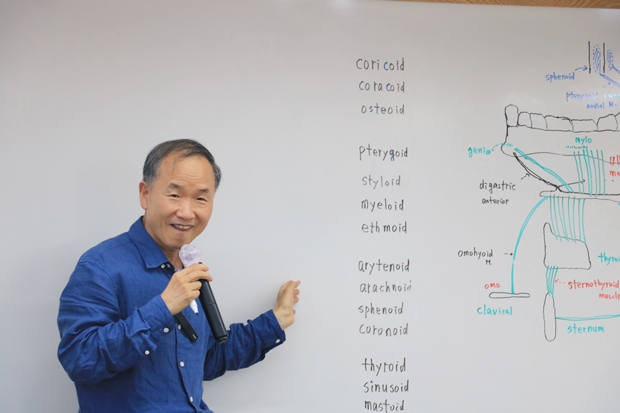 coricold
coracoid
osteoid
pterygoid
styloid
myeloid
ethmoid
arytenoid
arachnoid
sphenoid
coronoid
thyroid
sinusoid
mastoid
sphenoid
medial M.
genio
mylo
digastric
anterior
omohyoid
M
omo
clavical
sternothyroid
muscle
sternum